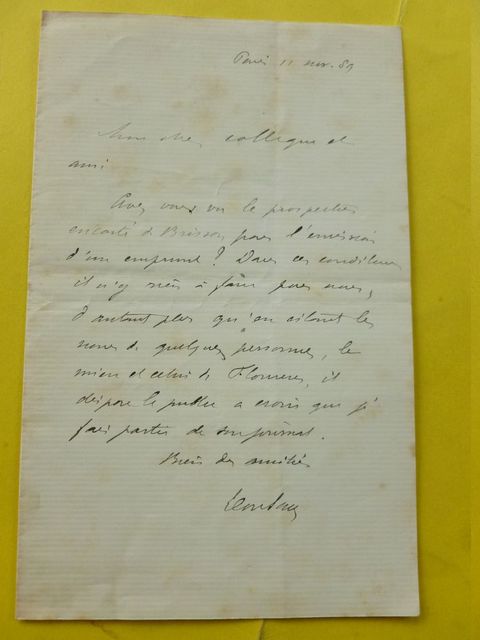 Paris 11 nov. 89
Mon cher collègue et
ami
Avez vous vu le prospectus
encarté de Brisson pour l'émission
d'un emprunt ? Dans ces conditions
il n'y rien à faire pour nous,
d'autant plus qu'en citant les
noms de quelques personnes, le
mien et celui de il
dispose le public a croire que j'
fais partie de son journal.
Bien des amitiés